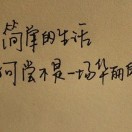 简单的生活
何尝不是一场华丽的